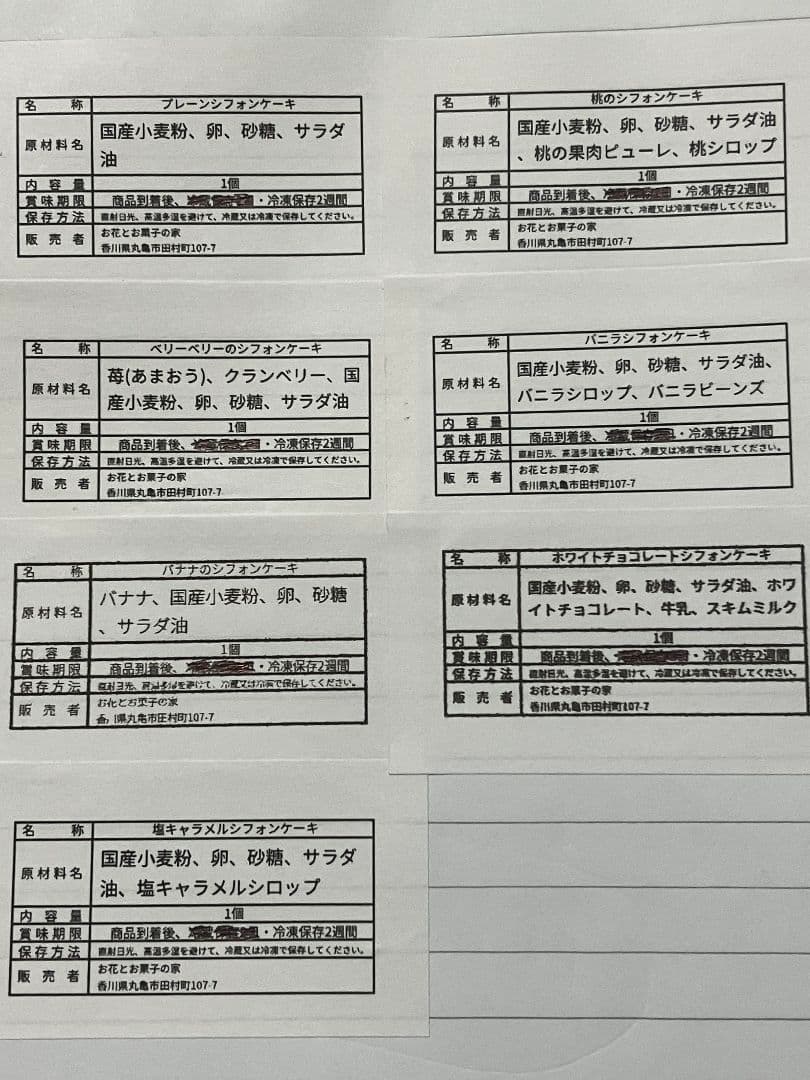 名 称 プレーンシフォンケーキ
原材料名 国産小麦粉、卵、砂糖、サラダ
油
内 容 量 1個
賞味期限 商品到着後、・冷凍保存2週間
保存方法 直射日光、高温多湿を避けて、冷蔵又は冷凍で保存してください。
販 売 者 お花とお菓子の家
香川県丸亀市田村町107-7
名 称 桃のシフォンケーキ
原材料名 国産小麦粉、卵、砂糖、サラダ油
、桃の果肉ピューレ、桃シロップ
内 容 量 1個
賞味期限 商品到着後、・冷凍保存2週間
保存方法 直射日光、高温多湿を避けて、冷蔵又は冷凍で保存してください。
販 売 者 お花とお菓子の家
香川県丸亀市田村町107-7
名 称 ベリーベリーのシフォンケーキ
原材料名 苺(あまおう)、クランベリー、国
産小麦粉、卵、砂糖、サラダ油
内 容 量 1個
賞味期限 商品到着後、・冷凍保存2週間
保存方法 直射日光、高温多湿を避けて、冷蔵又は冷凍で保存してください。
販 売 者 お花とお菓子の家
香川県丸亀市田村町107-7
名 称 バニラシフォンケーキ
原材料名 国産小麦粉、卵、砂糖、サラダ油、
バニラシロップ、バニラビーンズ
内 容 量 1個
賞味期限 商品到着後、・冷凍保存2週間
保存方法 直射日光、高温多湿を避けて、冷蔵又は冷凍で保存してください。
販 売 者 お花とお菓子の家
香川県丸亀市田村町107-7
名 称 バナナのシフォンケーキ
原材料名 バナナ、国産小麦粉、卵、砂糖
、サラダ油
内 容 量 1個
賞味期限 商品到着後、・冷凍保存2週間
保存方法 直射日光、高温多湿を避けて、冷蔵又は冷凍で保存してください。
販 売 者 お花とお菓子の家
香川県丸亀市田村町107-7
名 称 ホワイトチョコレートシフォンケーキ
原材料名 国産小麦粉、卵、砂糖、サラダ油、ホワ
イトチョコレート、牛乳、スキムミルク
内 容 量 1個
賞味期限 商品到着後、・冷凍保存2週間
保存方法 直射日光、高温多湿を避けて、冷蔵又は冷凍で保存してください。
販 売 者 お花とお菓子の家
香川県丸亀市田村町107-7
名 称 塩キャラメルシフォンケーキ
原材料名 国産小麦粉、卵、砂糖、サラダ
油、塩キャラメルシロップ
内 容 量 1個
賞味期限 商品到着後、・冷凍保存2週間
保存方法 直射日光、高温多湿を避けて、冷蔵又は冷凍で保存してください。
販 売 者 お花とお菓子の家
香川県丸亀市田村町107-7